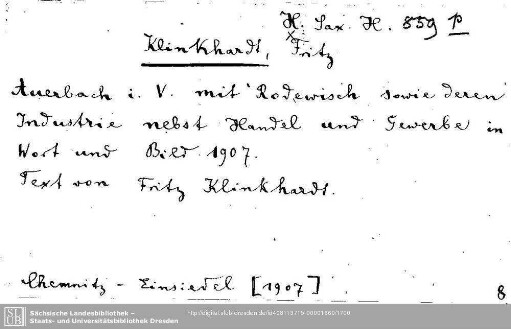 H. Sax. H. 859 p
Klinkhardt, Fritz
Auerbach i. V. mit Rodewisch sowie deren
Industrie nebst Handel und Gewerbe in
Wort und Bild 1907.
Text von Fritz Klinkhardt.
Chemnitz - Einsiedel [1907]
8
SLUB
Sächsische Landesbibliothek –
Staats- und Universitätsbibliothek Dresden